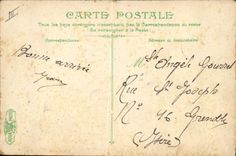 III
CARTE POSTALE
Tous les pays étrangers n'acceptent pas la Correspondance au recto
Se renseigner à la Poste
Correspondance
Adresse du destinataire
Bonne arrivée
Mlle Angèle
Rue St Joseph
No 16 Grenoble
Isère